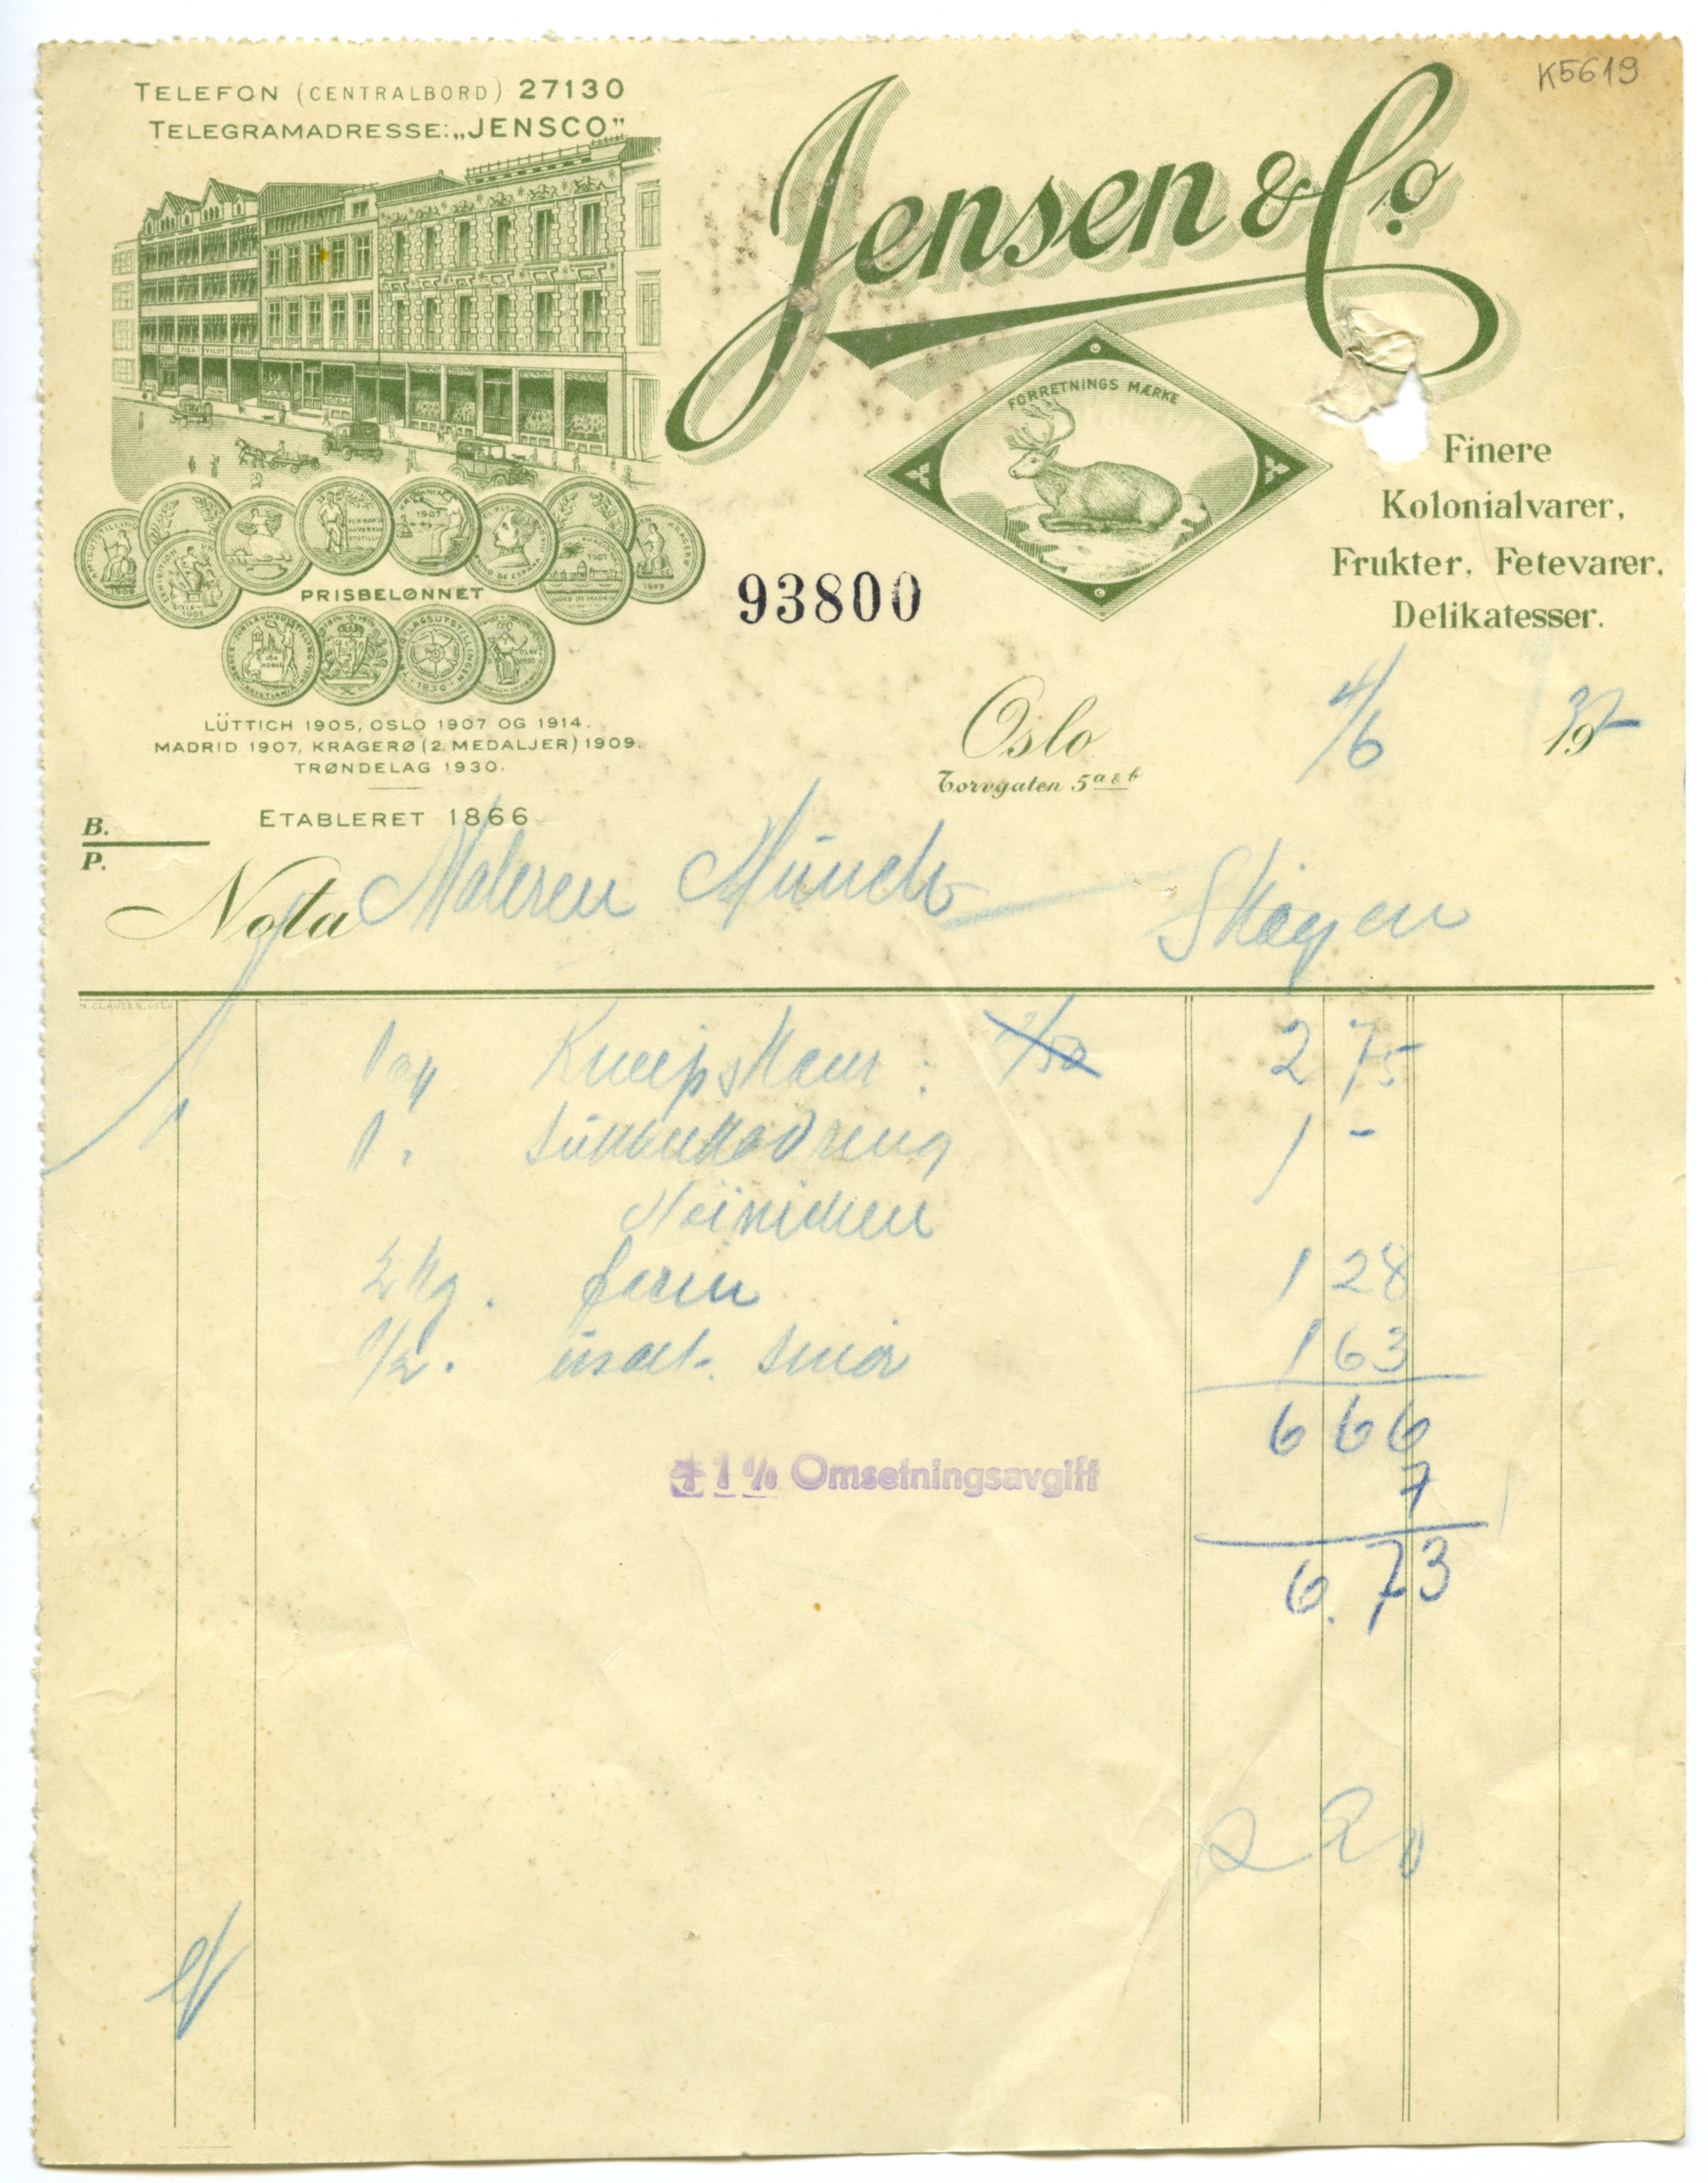 K5619
TELEFON (CENTRALBORD) 27130
TELEGRAMADRESSE: „JENSCO”
Jensen & Co
FORRETNINGS MÆRKE
Finere
Kolonialvarer,
Frukter, Fetevarer,
Delikatesser.
PRISBELØNNET
93800
LÜTTICH 1905, OSLO 1907 OG 1914.
MADRID 1907, KRAGERØ (2 MEDALJER) 1909.
TRØNDELAG 1930.
ETABLERET 1866
Oslo 4/6 19
Torvgaten 5 a & b
B.
P.
Nota Maleren Münch Skøyen
H. CLAUSEN, OSLO
1 2 75
1 1 -
2 kg. 1 28
1/2. usalt. smør 1 63
6 66
+ 1 % Omsetningsavgift 7
6.73